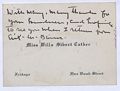 With many, many thanks for
your kindness, and hoping
to see you when I return from
Miss Willa Sibert Cather
Fridays
Five Bank Street